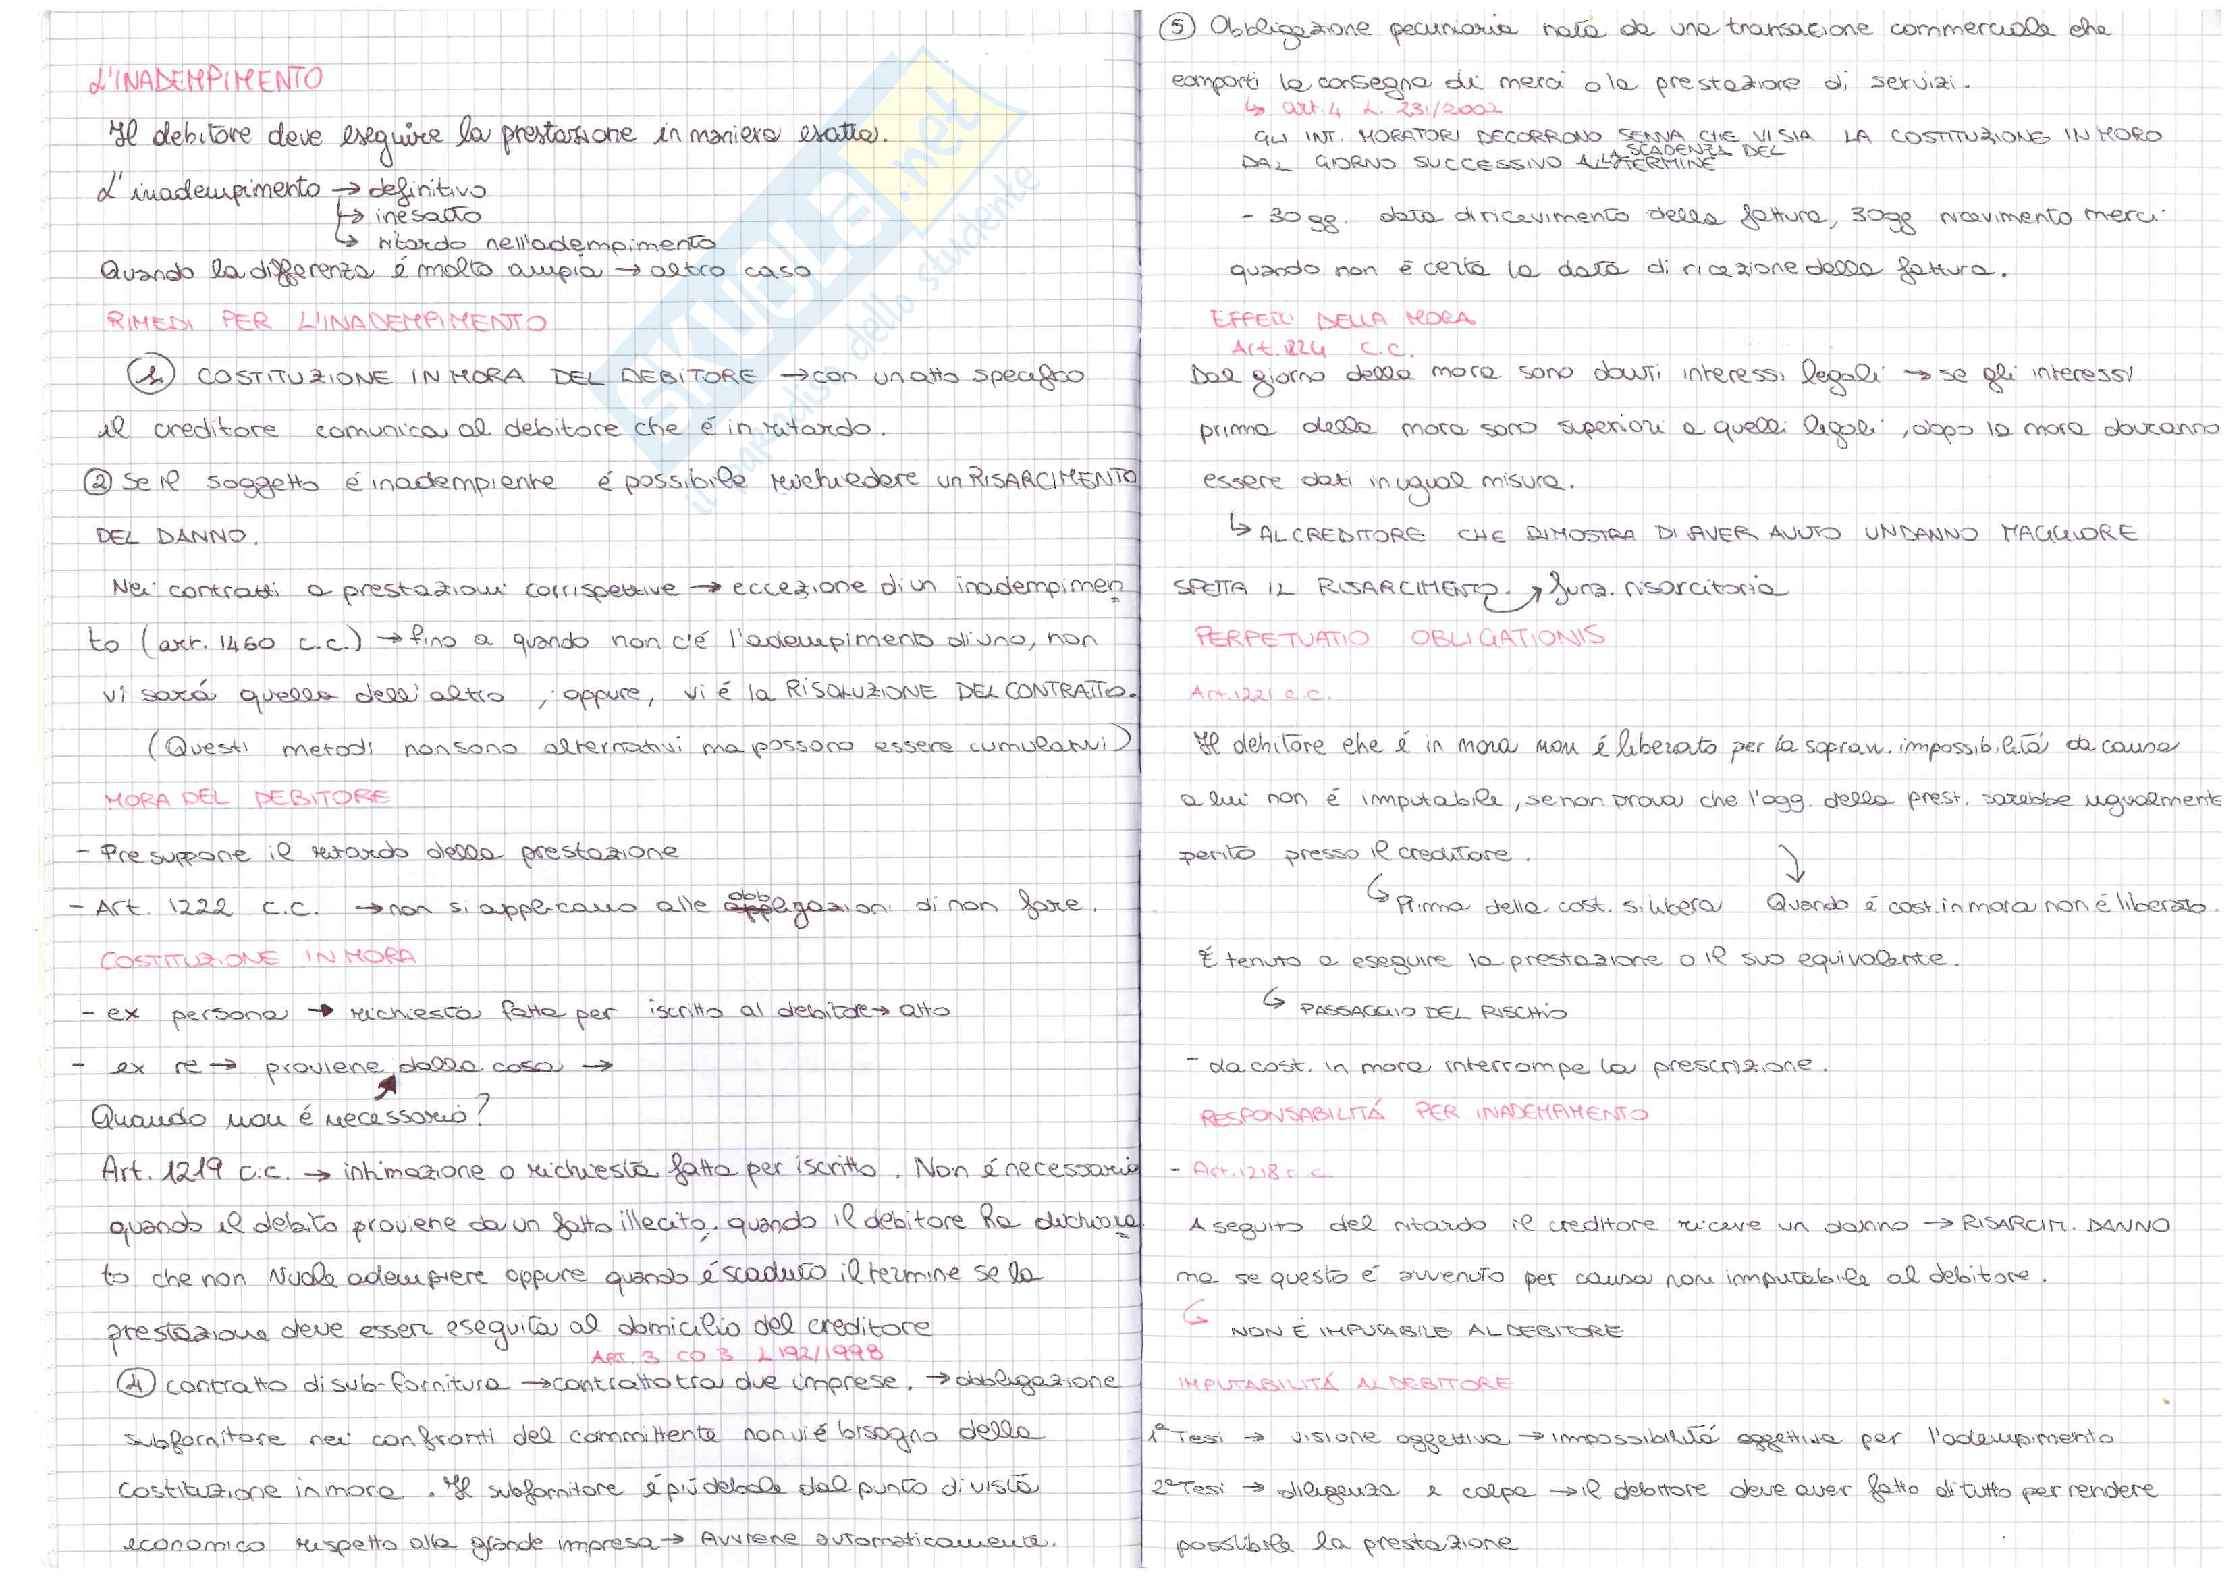 L'INADEMPIMENTO
Il debitore deve eseguire la prestazione in maniera esatta.
L'inadempimento → definitivo
↳ inesatto
↳ ritardo nell'adempimento
Quando la differenza é molto ampia → altro caso
RIMEDI PER L'INADEMPIMENTO
① COSTITUZIONE IN MORA DEL DEBITORE → con un atto specifico
il creditore comunica al debitore che é in ritardo.
② Se il soggetto é inadempiente é possibile richiedere un RISARCIMENTO
DEL DANNO.
Nei contratti a prestazioni corrispettive → eccezione di un inadempimen
to (art. 1460 c.c.) → fino a quando non c'é l'adempimento di uno, non
vi sará quello dell'altro, oppure, vi é la RISOLUZIONE DEL CONTRATTO.
(Questi metodi non sono alternativi ma possono essere cumulativi)
MORA DEL DEBITORE
- Presuppone il ritardo della prestazione
- Art. 1222 c.c. → non si applicano alle obbligazioni di non fare.
COSTITUZIONE IN MORA
- ex persona → richiesta fatta per iscritto al debitore → atto
- ex re → proviene dalla cosa →
Quando non é necessario?
Art. 1219 c.c. → intimazione o richiesta fatta per iscritto. Non é necessario
quando il debito proviene da un fatto illecito, quando il debitore ha dichiara
to che non vuole adempiere oppure quando é scaduto il termine se la
prestazione deve esser eseguita al domicilio del creditore
ART. 3 CO 3 L 192/1998
④ contratto di sub-fornitura → contratto tra due imprese. → obbligazione
subfornitore nei confronti del committente non vi é bisogno della
costituzione in mora. Il subfornitore é piú debole dal punto di vista
economico rispetto alla grande impresa → Avviene automaticamente.
⑤ Obbligazione pecuniaria nata da una transazione commerciale che
comporti la consegna di merci o la prestazione di servizi.
↳ art. 4 L. 231/2002
GLI INT. MORATORI DECORRONO SENNA CHE VI SIA LA COSTITUZIONE IN MORO
LA SCADENZA DEL
DAL GIORNO SUCCESSIVO ALL TERMINE
- 30 gg. data di ricevimento della fattura, 30gg ricevimento merci
quando non é certa la data di ricezione della fattura.
EFFETTI DELLA MORA
Art. 224 c.c.
Dal giorno della mora sono dovuti interessi legali → se gli interessi
prima della mora sono superiori a quelli legali, dopo la mora dovranno
essere dati in ugual misura.
↳ AL CREDITORE CHE DIMOSTRA DI AVER AVUTO UN DANNO MAGGIORE
SPETTA IL RISARCIMENTO. → funz. risarcitoria
PERPETUATIO OBLIGATIONIS
Art. 1221 c.c.
Il debitore che é in mora non é liberato per la soprav. impossibilitá da causa
a lui non é imputabile, se non prova che l'ogg. della prest. sarebbe ugualmente
perito presso il creditore.
↳ Prima della cost. si libera Quando é cost. in mora non é liberato.
É tenuto a eseguire la prestazione o il suo equivalente.
↳ PASSAGGIO DEL RISCHIO
- da cost. in mora interrompe la prescrizione.
RESPONSABILITÁ PER INADEMPIMENTO
- Art. 1218 c.c
A seguito del ritardo il creditore riceve un danno → RISARCIM. DANNO
ma se questo é avvenuto per causa non imputabile al debitore.
↳ NON É IMPUTABILE AL DEBITORE
IMPUTABILITÁ AL DEBITORE
1ª Tesi → visione oggettiva → impossibilitá oggettiva per l'adempimento
2ª Tesi → diligenza e colpa → il debitore deve aver fatto di tutto per rendere
possibile la prestazione
SKUOLA.net
il paradiso dello studente